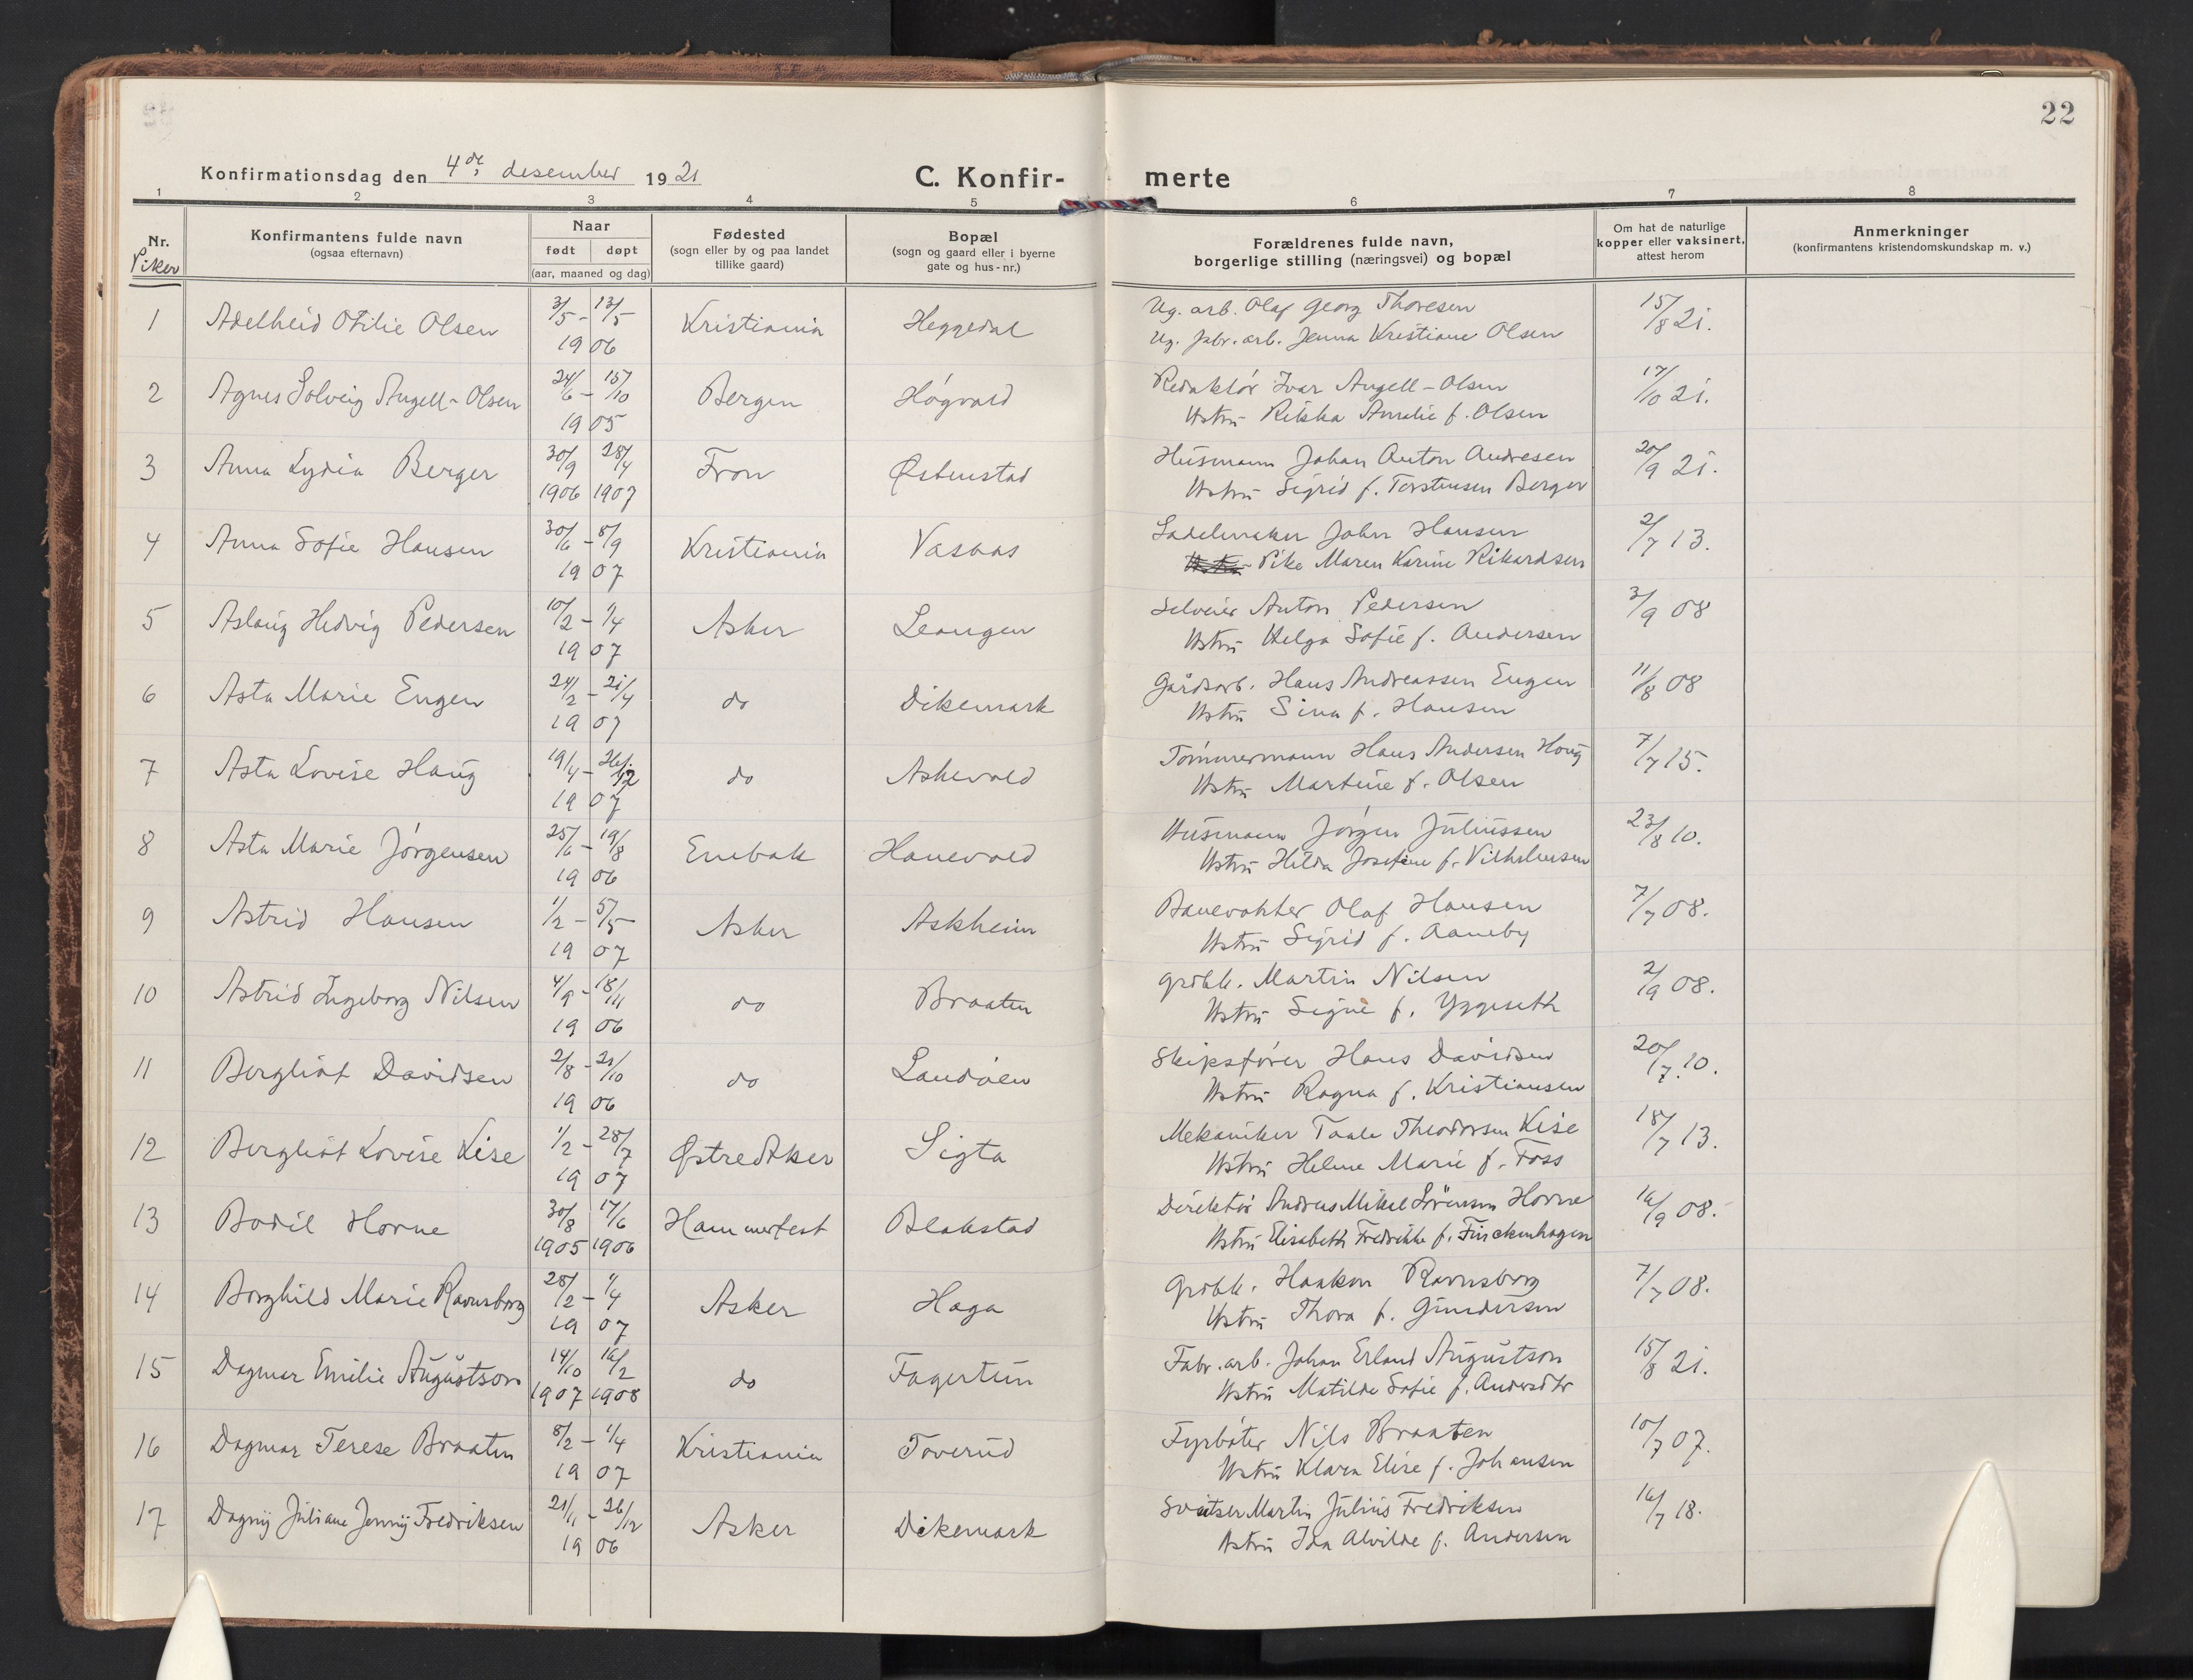 22
Konfirmationsdag den 4de desember 1921
C. Konfir- merte
1 2 3 4 5 6 7 8
Nr. Piker
Konfirmantens fulde navn (ogsaa efternavn)
Naar født døpt (aar, maaned og dag)
Fødested (sogn eller by og paa landet tillike gaard)
Bopæl (sogn og gaard eller i byerne gate og hus-nr.)
Forældrenes fulde navn, borgerlige stilling (næringsvei) og bopæl
Om hat de naturlige kopper eller vaksinert, attest herom
Anmerkninger (konfirmantens kristendomskundskap m. v.)
1 Adelheid Otilie Olsen 3/5 - 13/5 1906 Kristiania Heggedal Ug. arb. Olaf Georg Thoresen 15/8 21.
Ug. fabr. arb. Jenna Kristiane Olsen
2 Agnes Solveig Angell-Olsen 24/6 - 15/10 1905 Bergen Høgvold Redaktør Ivar Angell-Olsen 17/10 21.
Hstru Amalie f. Olsen
3 Anna Lydia Berger 30/9 1906 28/4 1907 Fron Østenstad Husmann Johan Anton Andresen 20/9 21.
Hstru Sigrid f. Torstensen Berger
4 Anna Sofie Hansen 30/6 - 8/9 1907 Kristiania Vasaas Sadelmaker Johan Hansen 2/7 13.
Pike Maren Karine Rikardsen
5 Aslaug Hedvig Pedersen 10/2 - 1/4 1907 Asker Leangen Selveier Anton Pedersen 3/9 08
Hstru Helga Sofie f. Andersen
6 Asta Marie Engen 24/2 - 21/4 1907 do Dikemark Gårdsarb. Hans Andreassen Engen 11/8 08
Hstru Sina f. Hansen
7 Asta Lovise Haug 19/4 - 26/12 1907 do Askevold Tømmermann Hans Andersen Haug 7/7 15.
Hstru Martine f. Olsen
8 Asta Marie Jørgensen 25/6 - 19/8 1906 Enebak Hanevold Husmann Jørgen Juliussen 23/8 10.
Hstru Hilda Josefine f. Vilhelmsen
9 Astrid Hansen 1/2 - 5/5 1907 Asker Askheim Banevokter Olaf Hansen 7/7 08.
Hstru Sigrid f. Aaneby
10 Astrid Ingeborg Nilsen 4/9 - 18/11 1906 do Braaten Grdbb. Martin Nilsen 2/9 08.
Hstru Signe f. Yggeseth
11 Bergliot Davidsen 2/8 - 21/10 1906 do Landøen Skipsfører Hans Davidsen 20/7 10.
Hstru Ragna f. Kristiansen
12 Bergliot Lovise Kise 1/2 - 28/7 1907 Østre Aker Sigta Mekaniker Taale Theodorsen Kise 18/7 13.
Hstru Helene Marie f. Foss
13 Bodil Horne 30/8 1905 17/6 1906 Hammerfest Blakstad Direktør Andreas Mikel Sørensen Horne 16/9 08.
Hstru Elisabeth Fredrikke f. Finckenhagen
14 Borghild Marie Ravnsborg 28/2 - 1/4 1907 Asker Haga Grdbb. Haakon Ravnsborg 7/7 08.
Hstru Thora f. Gundersen
15 Dagmar Emilie Augustson 14/10 1907 16/2 1908 do Fagertun Fabr. arb. Johan Erland Augustson 15/8 21.
Hstru Matilde Sofie f. Andersdtr
16 Dagmar Terese Braaten 8/2 - 1/4 1907 Kristiania Toverud Fyrbøter Nils Braaten 10/7 07.
Hstru Klara Elise f. Johansen
17 Dagny Juliane Jenny Fredriksen 21/11 - 26/12 1906 Asker Dikemark Sveitser Martin Julius Fredriksen 16/7 18.
Hstru Ida Alvilde f. Andersen